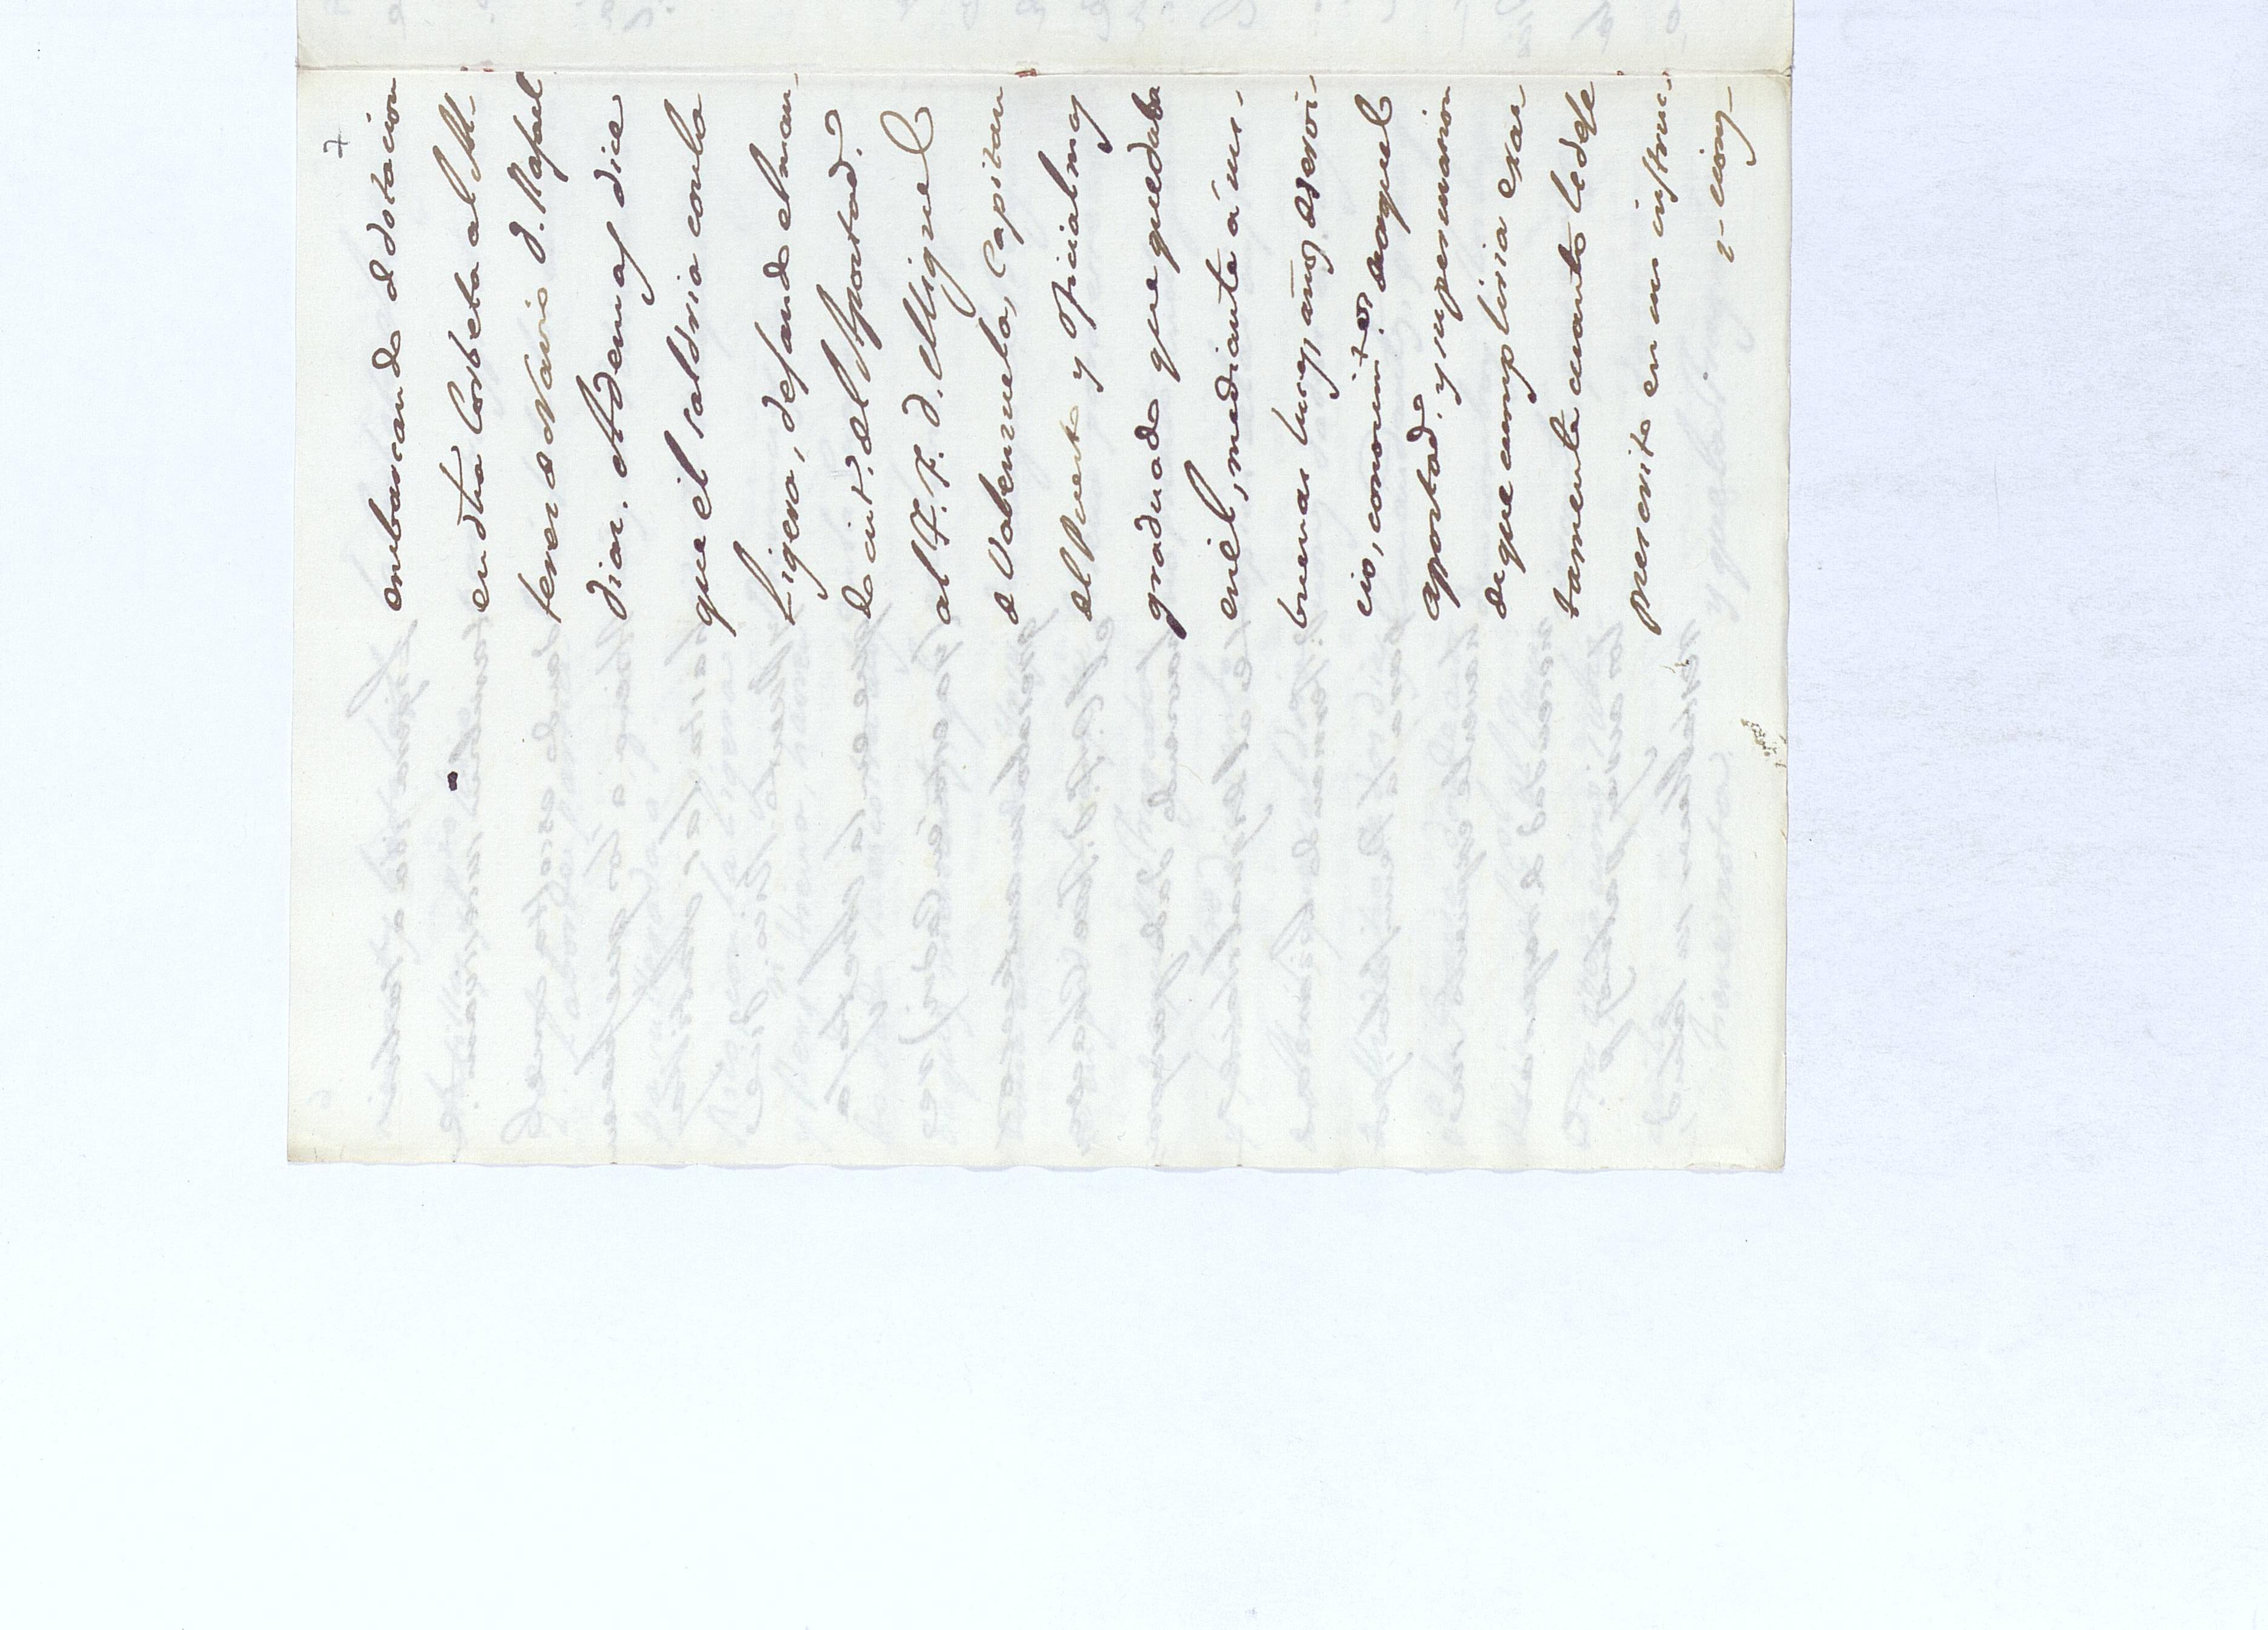 7
embarcando de dotacion
en dha Corbeta al Al-
ferez de Navio D. Rafael
Dior. Ademas dice
que él saldria con la
Ligera, dejando el man-
do int.º del Apostad.º
al T. F. D. Miguel
de Valenzuela, Capitan
del Puerto y oficial mas
graduado que quedaba
en él, mediante á sus
buenas luces, años de servi-
cio, conocim.tos de aquel
apostad.º y supersuasion
de que cumpliria exac
tamente cuanto le dejo
prescrito en sus instruc-
ciones